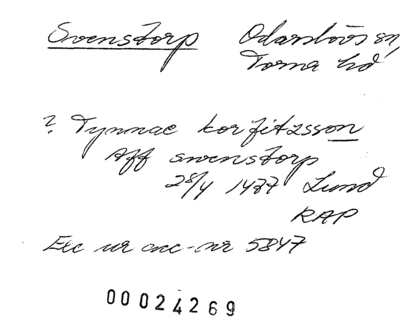 Svenstorp Odarslövs sn,
Torna hd
? Tynnae korfitzsson
Aff svenstorp
28/4 1487 Lund
RAP
Exc ur acc-nr 5847
00024269